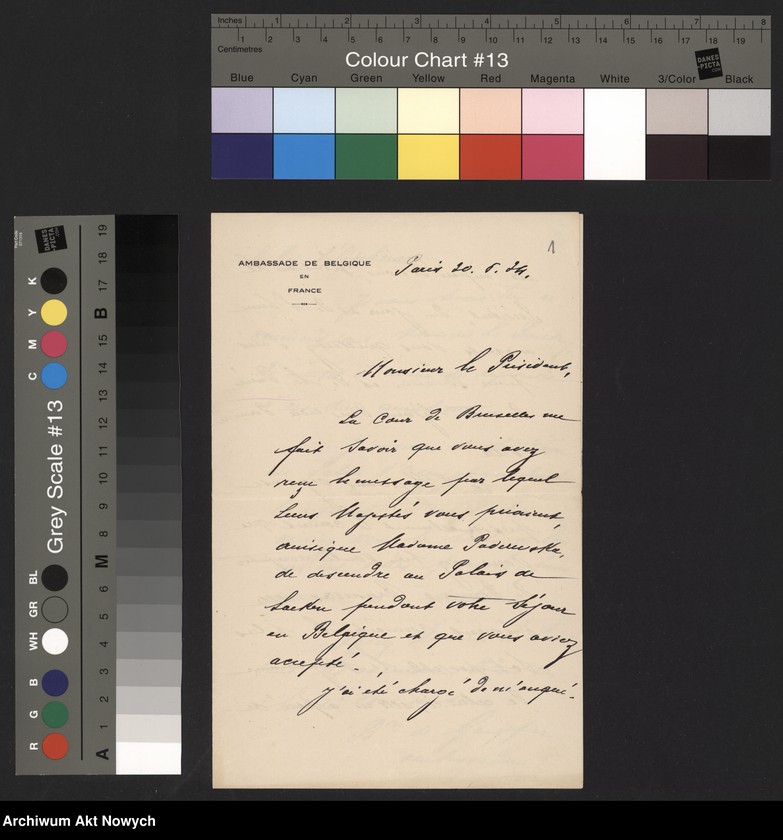 Inches 1 2 3 4 5 6 7 8
Centimetres 1 2 3 4 5 6 7 8 9 10 11 12 13 14 15 16 17 18 19
Colour Chart #13
DANES-PICTA.COM
Blue Cyan Green Yellow Red Magenta White 3/Color Black
Grey Scale #13
DANES-PICTA.COM
R G B WH GR BL C M Y K
A 1 2 3 4 5 6 M 8 9 10 11 12 13 14 15 B 17 18 19
1
AMBASSADE DE BELGIQUE
EN
FRANCE
Paris 20. 5. 24.
Monsieur le Président,
La Cour de Bruxelles me
fait savoir que vous avez
reçu le message par lequel
Leurs Majestés vous priaient,
ainsique Madame Paderewska,
de descendre au Palais de
Laeken pendant votre séjour
en Belgique et que vous aviez
accepté.
J'ai été chargé de m'enqué-
Archiwum Akt Nowych